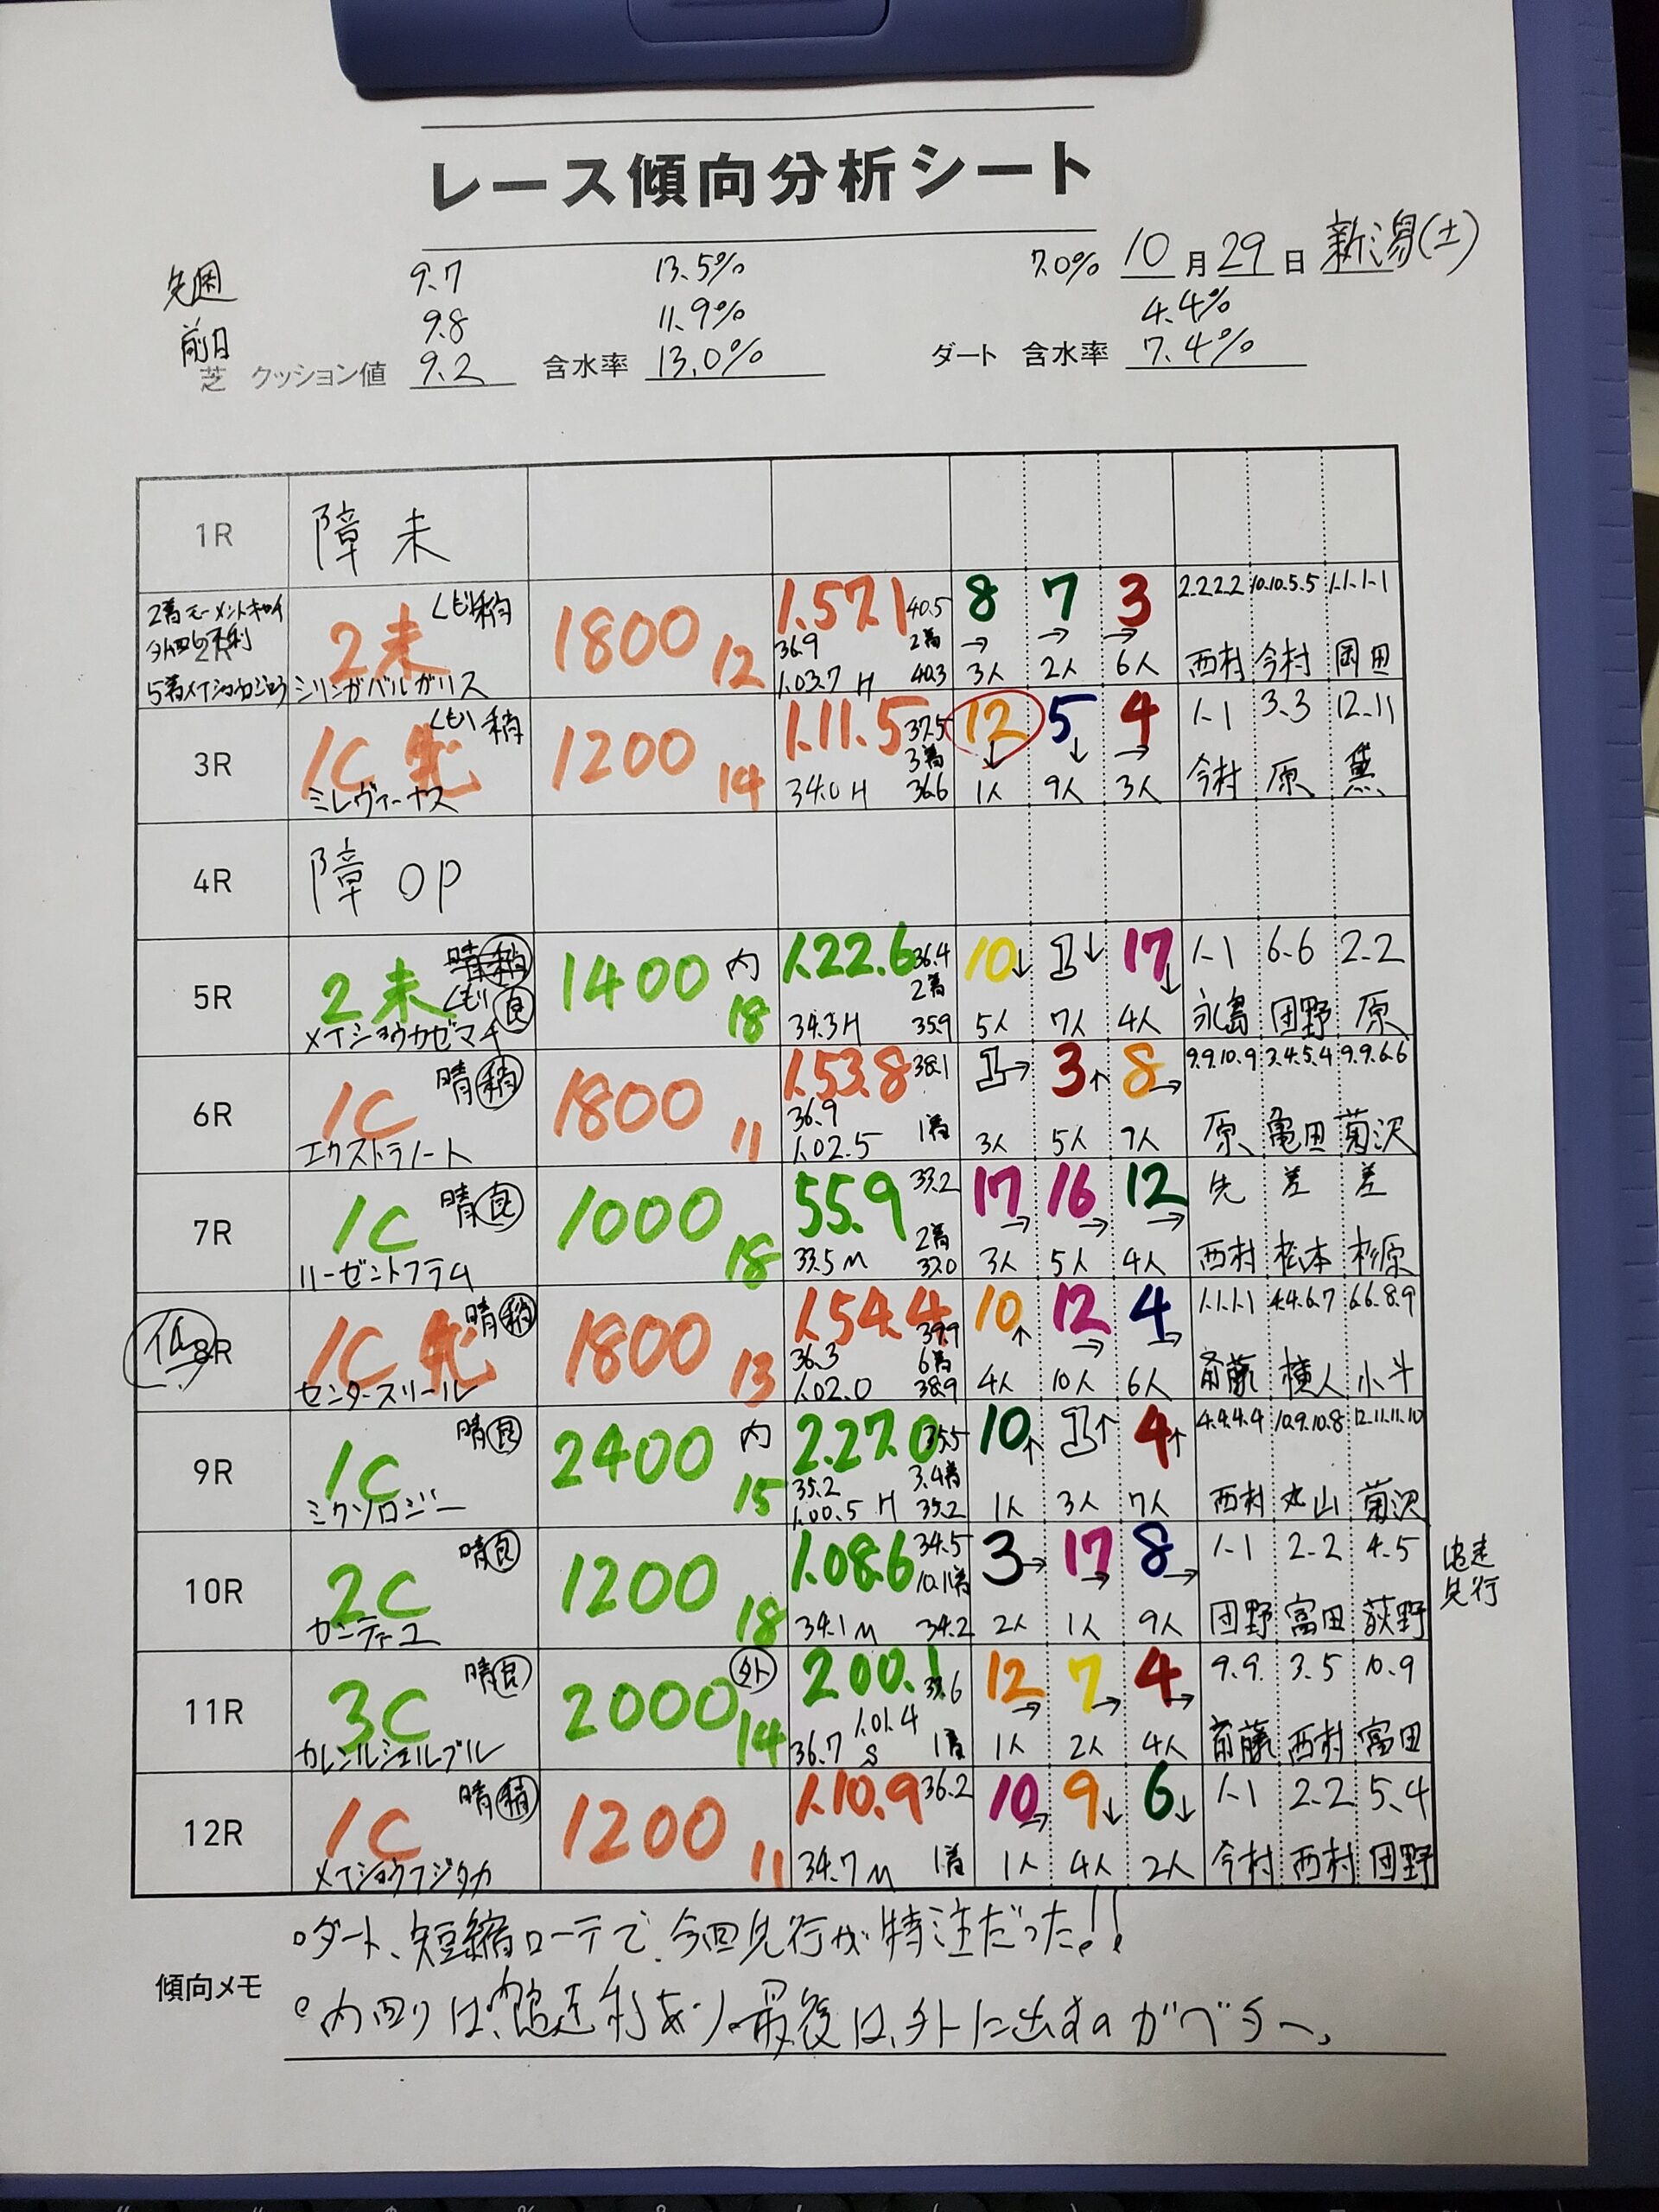 レース傾向分析シート
10月29日 新潟(土)
先週 9.7 13.5% 7.0%
前日 9.8 11.9% 4.4%
芝 クッション値 9.2 含水率 13.0% ダート 含水率 7.4%
1R 障未
2着モーメントキャッチ
5着メイショウカジロウ
2R 2未 くもり稍 1800 12 1.57.1 40.5 8 7 3 2.2.2.2 10.10.5.5 1.1.1.1
36.9 2着 → → →
シリンガバルガリス 1.03.7 H 40.3 3人 2人 6人 西村 今村 岡田
3R 1C 牝 くもり稍 1200 14 1.11.5 37.5 12 5 4 1.1 3.3 12.11
3着 ↓ ↓ →
ミレヴィーナス 34.0 H 36.6 1人 9人 3人 今村 原 黛
4R 障OP
5R 2未 晴稍 くもり良 1400 内 18 1.22.6 36.4 10↓ 1↓ 17↓ 1.1 6.6 2.2
2着
メイショウカゼマチ 34.3H 35.9 5人 7人 4人 永島 団野 原
6R 1C 晴稍 1800 11 1.53.8 38.1 1→ 3↑ 8→ 9.9.10.9 3.4.5.4 9.9.6.6
36.9
エクストラノート 1.02.5 1着 3人 5人 7人 原 亀田 菊沢
7R 1C 晴良 1000 18 55.9 33.2 17→ 16→ 12→ 先 差 差
2着
リーゼントフラム 33.5 M 33.0 3人 5人 4人 西村 松本 杉原
8R 1C 牝 晴稍 1800 13 1.54.4 39.9 10↑ 12→ 4→ 1.1.1.1 4.4.6.7 6.6.8.9
36.3 6着
センタースリール 1.02.0 38.9 4人 10人 6人 斎藤 横人 小斗
9R 1C 晴良 2400 内 15 2.27.0 35.5 10↑ 1↑ 4↑ 4.4.4.4 10.9.10.8 12.11.11.10
35.2 3.4着
ミクソロジー 1.00.5 H 35.2 1人 3人 7人 西村 丸山 菊沢
10R 2C 晴良 1200 18 1.08.6 34.5 3→ 17→ 8→ 1.1 2.2 4.5
10.11着
カンティーユ 34.1 M 34.2 2人 1人 9人 団野 富田 荻野
追走
先行
11R 3C 晴良 2000 外 14 2.00.1 33.6 12→ 7→ 4→ 9.9. 3.5 10.9
1.01.4
カレンルシェルブル 36.7 S 1着 1人 2人 4人 斎藤 西村 富田
12R 1C 晴稍 1200 11 1.10.9 36.2 10→ 9↓ 6↓ 1.1 2.2 5.4
メイショウフジタカ 34.7 M 1着 1人 4人 2人 今村 西村 団野
傾向メモ
○ダート、短縮ローテで、今回先行が特注だった!!
○内回りは、追走利あり。最後は、外に出すのがベター。